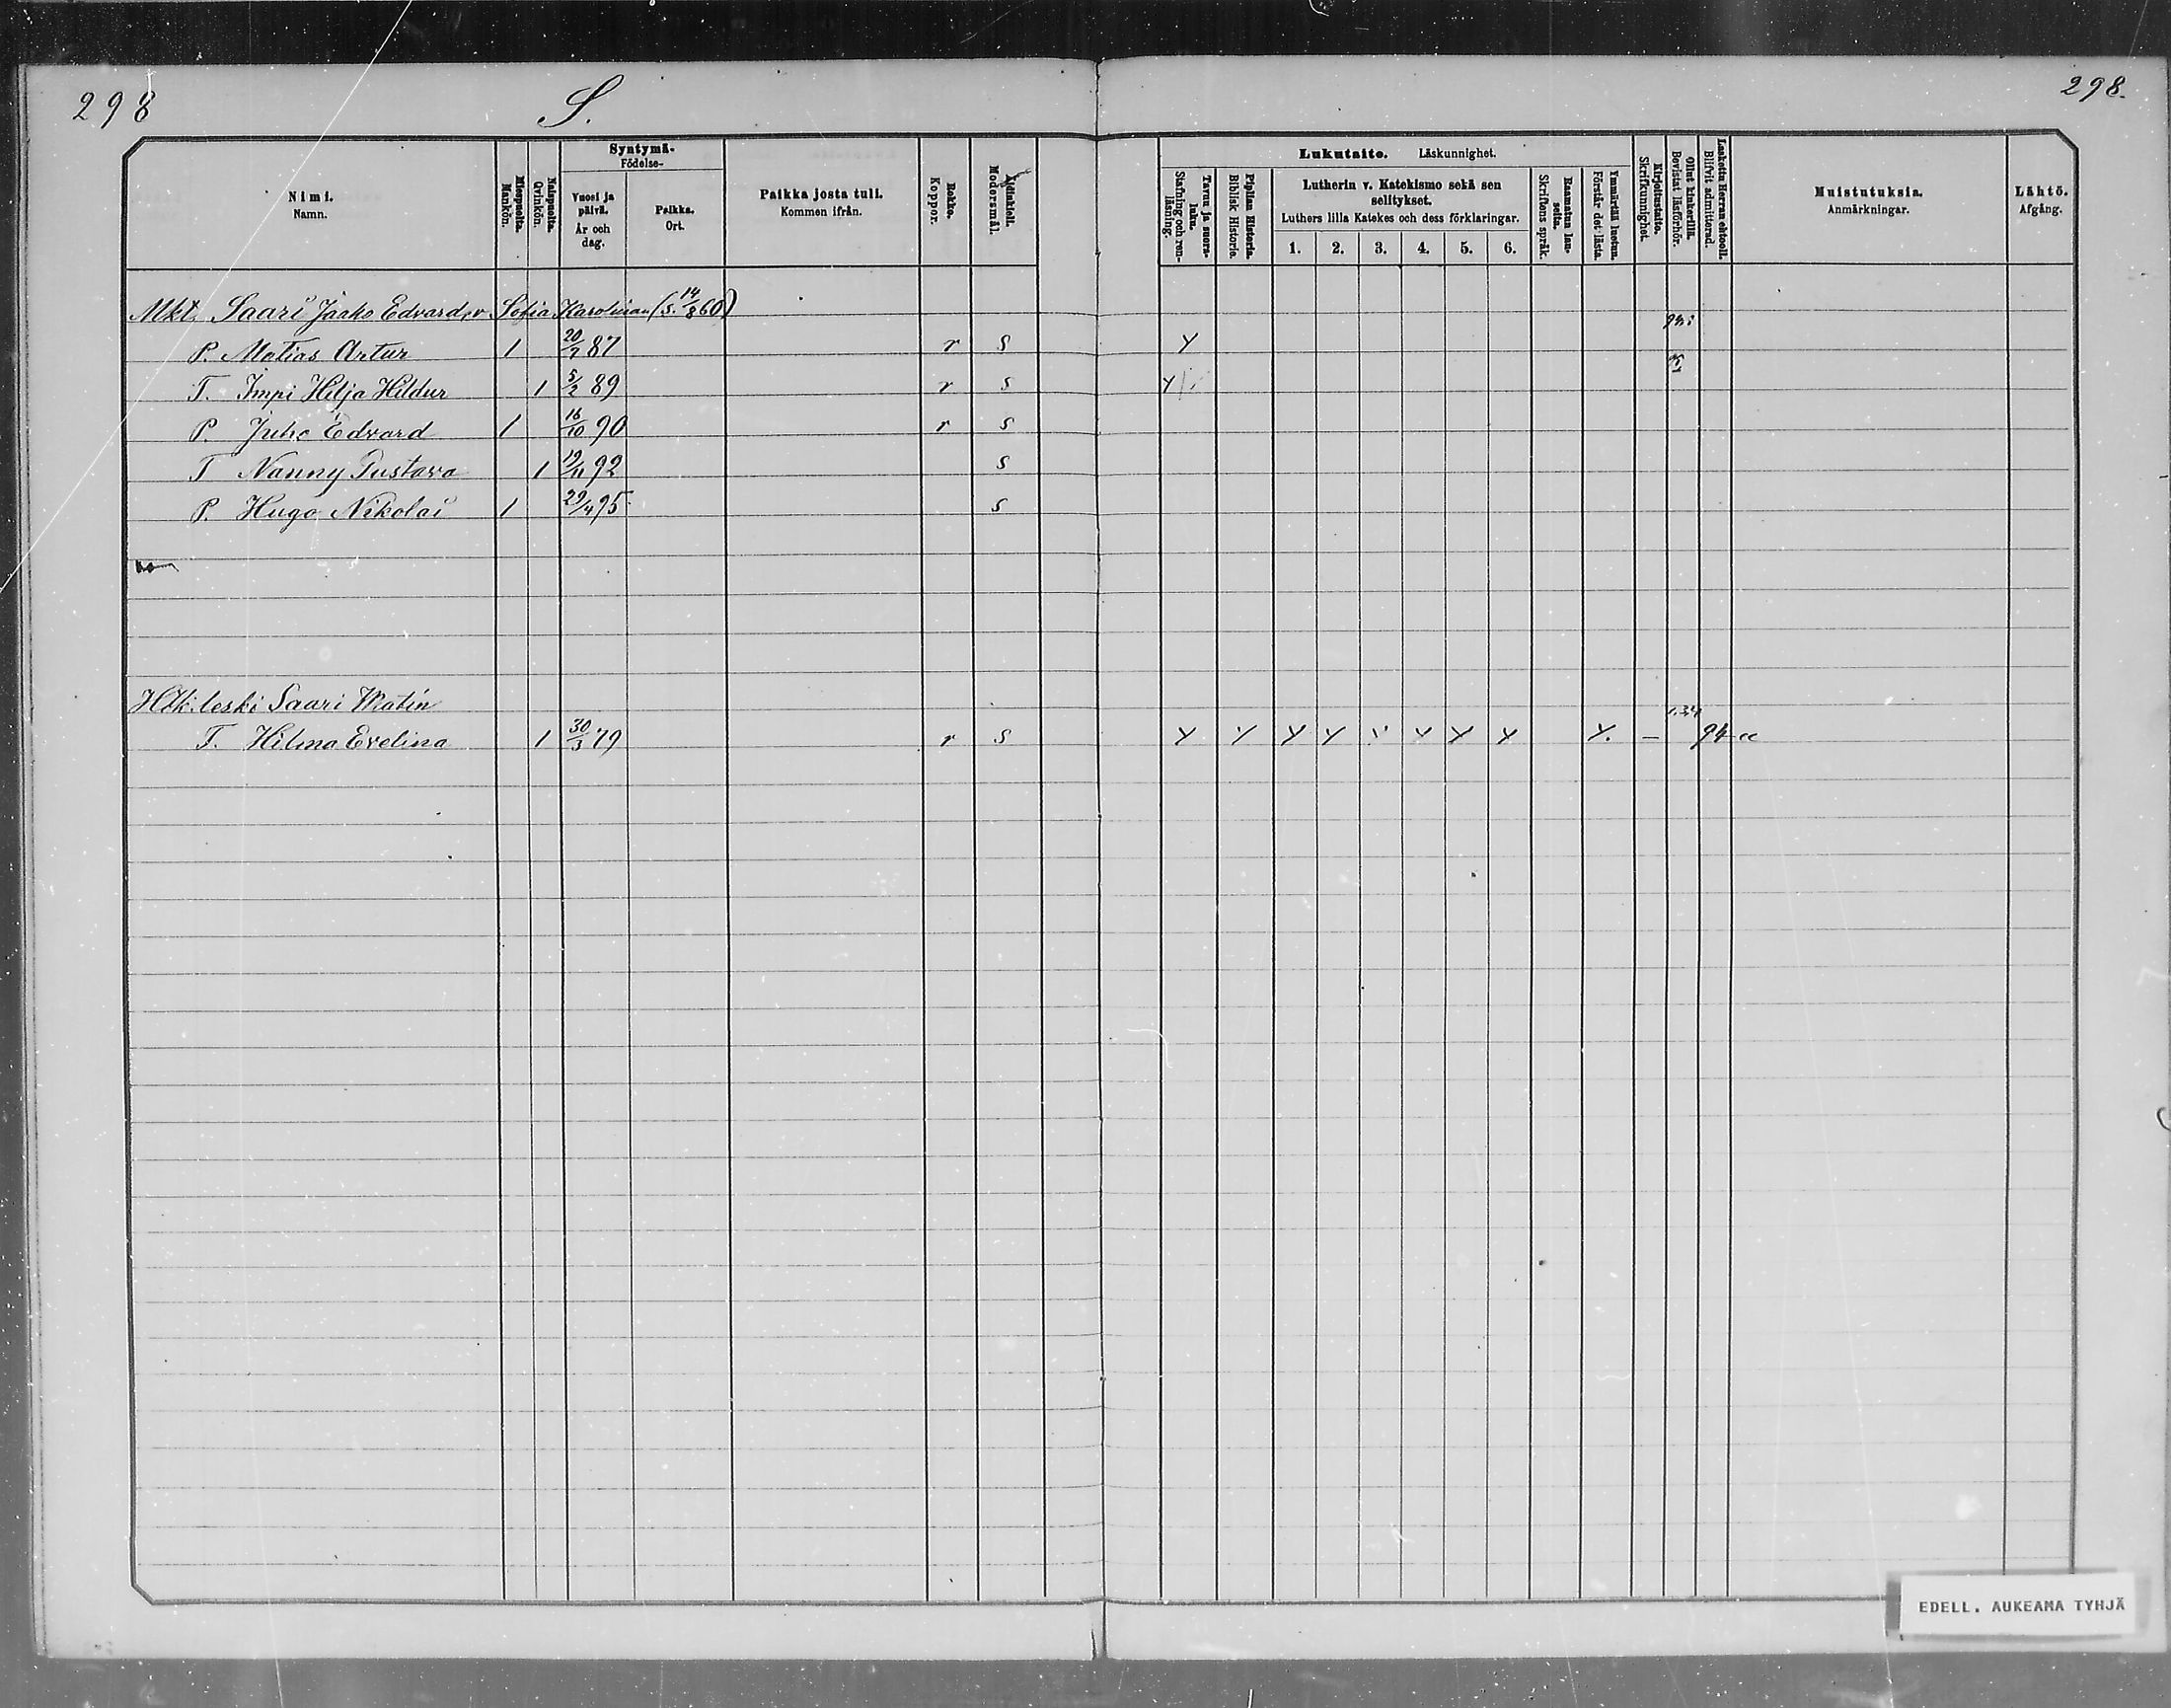 298
S.
298.
Nimi.
Namn.
Miespuolta.
Mankön.
Naispuolta.
Qvinkön.
Syntymä-
Födelse-
Vuosi ja päivä.
År och dag.
Paikka.
Ort.
Paikka josta tuli.
Kommen ifrån.
Rokko.
Koppor.
Äidinkieli.
Modersmål.
Lukutaito. Läskunnighet.
Tavuu ja suora-luku.
Stafning och ren-läsning.
Piplian Historia.
Biblisk Historie.
Lutherin v. Katekismo sekä sen
selitykset.
Luthers lilla Katekes och dess förklaringar.
1. 2. 3. 4. 5. 6.
Raamatun lau-seita.
Skriftens språk.
Ymmärtää luetun.
Förstår det lästa.
Kirjoitustaito.
Skrifkunnighet.
Ollut kinkerillä.
Bevistat läsförhör.
Laskettu Herran ehtooll.
Blifvit admitterad.
Muistutuksia.
Anmärkningar.
Lähtö.
Afgång.
Mkt. Saari Jaako Edvard, v Sofia Karolinan (s. 14/8 60)
P. Matias Artur 1 20/7 87 r s Y
T. Impi Hilja Hildur 1 5/2 89 r s Y
P. Juho Edvard 1 16/10 90 r s
T Nanny Gustava 1 19/11 92 s
P. Hugo Nikolai 1 29/4 95 s
Htk. leski Saari Matin
T. Hilma Evelina 1 30/3 79 r s Y Y Y Y Y Y Y Y Y. — 94
EDELL. AUKEAMA TYHJÄ